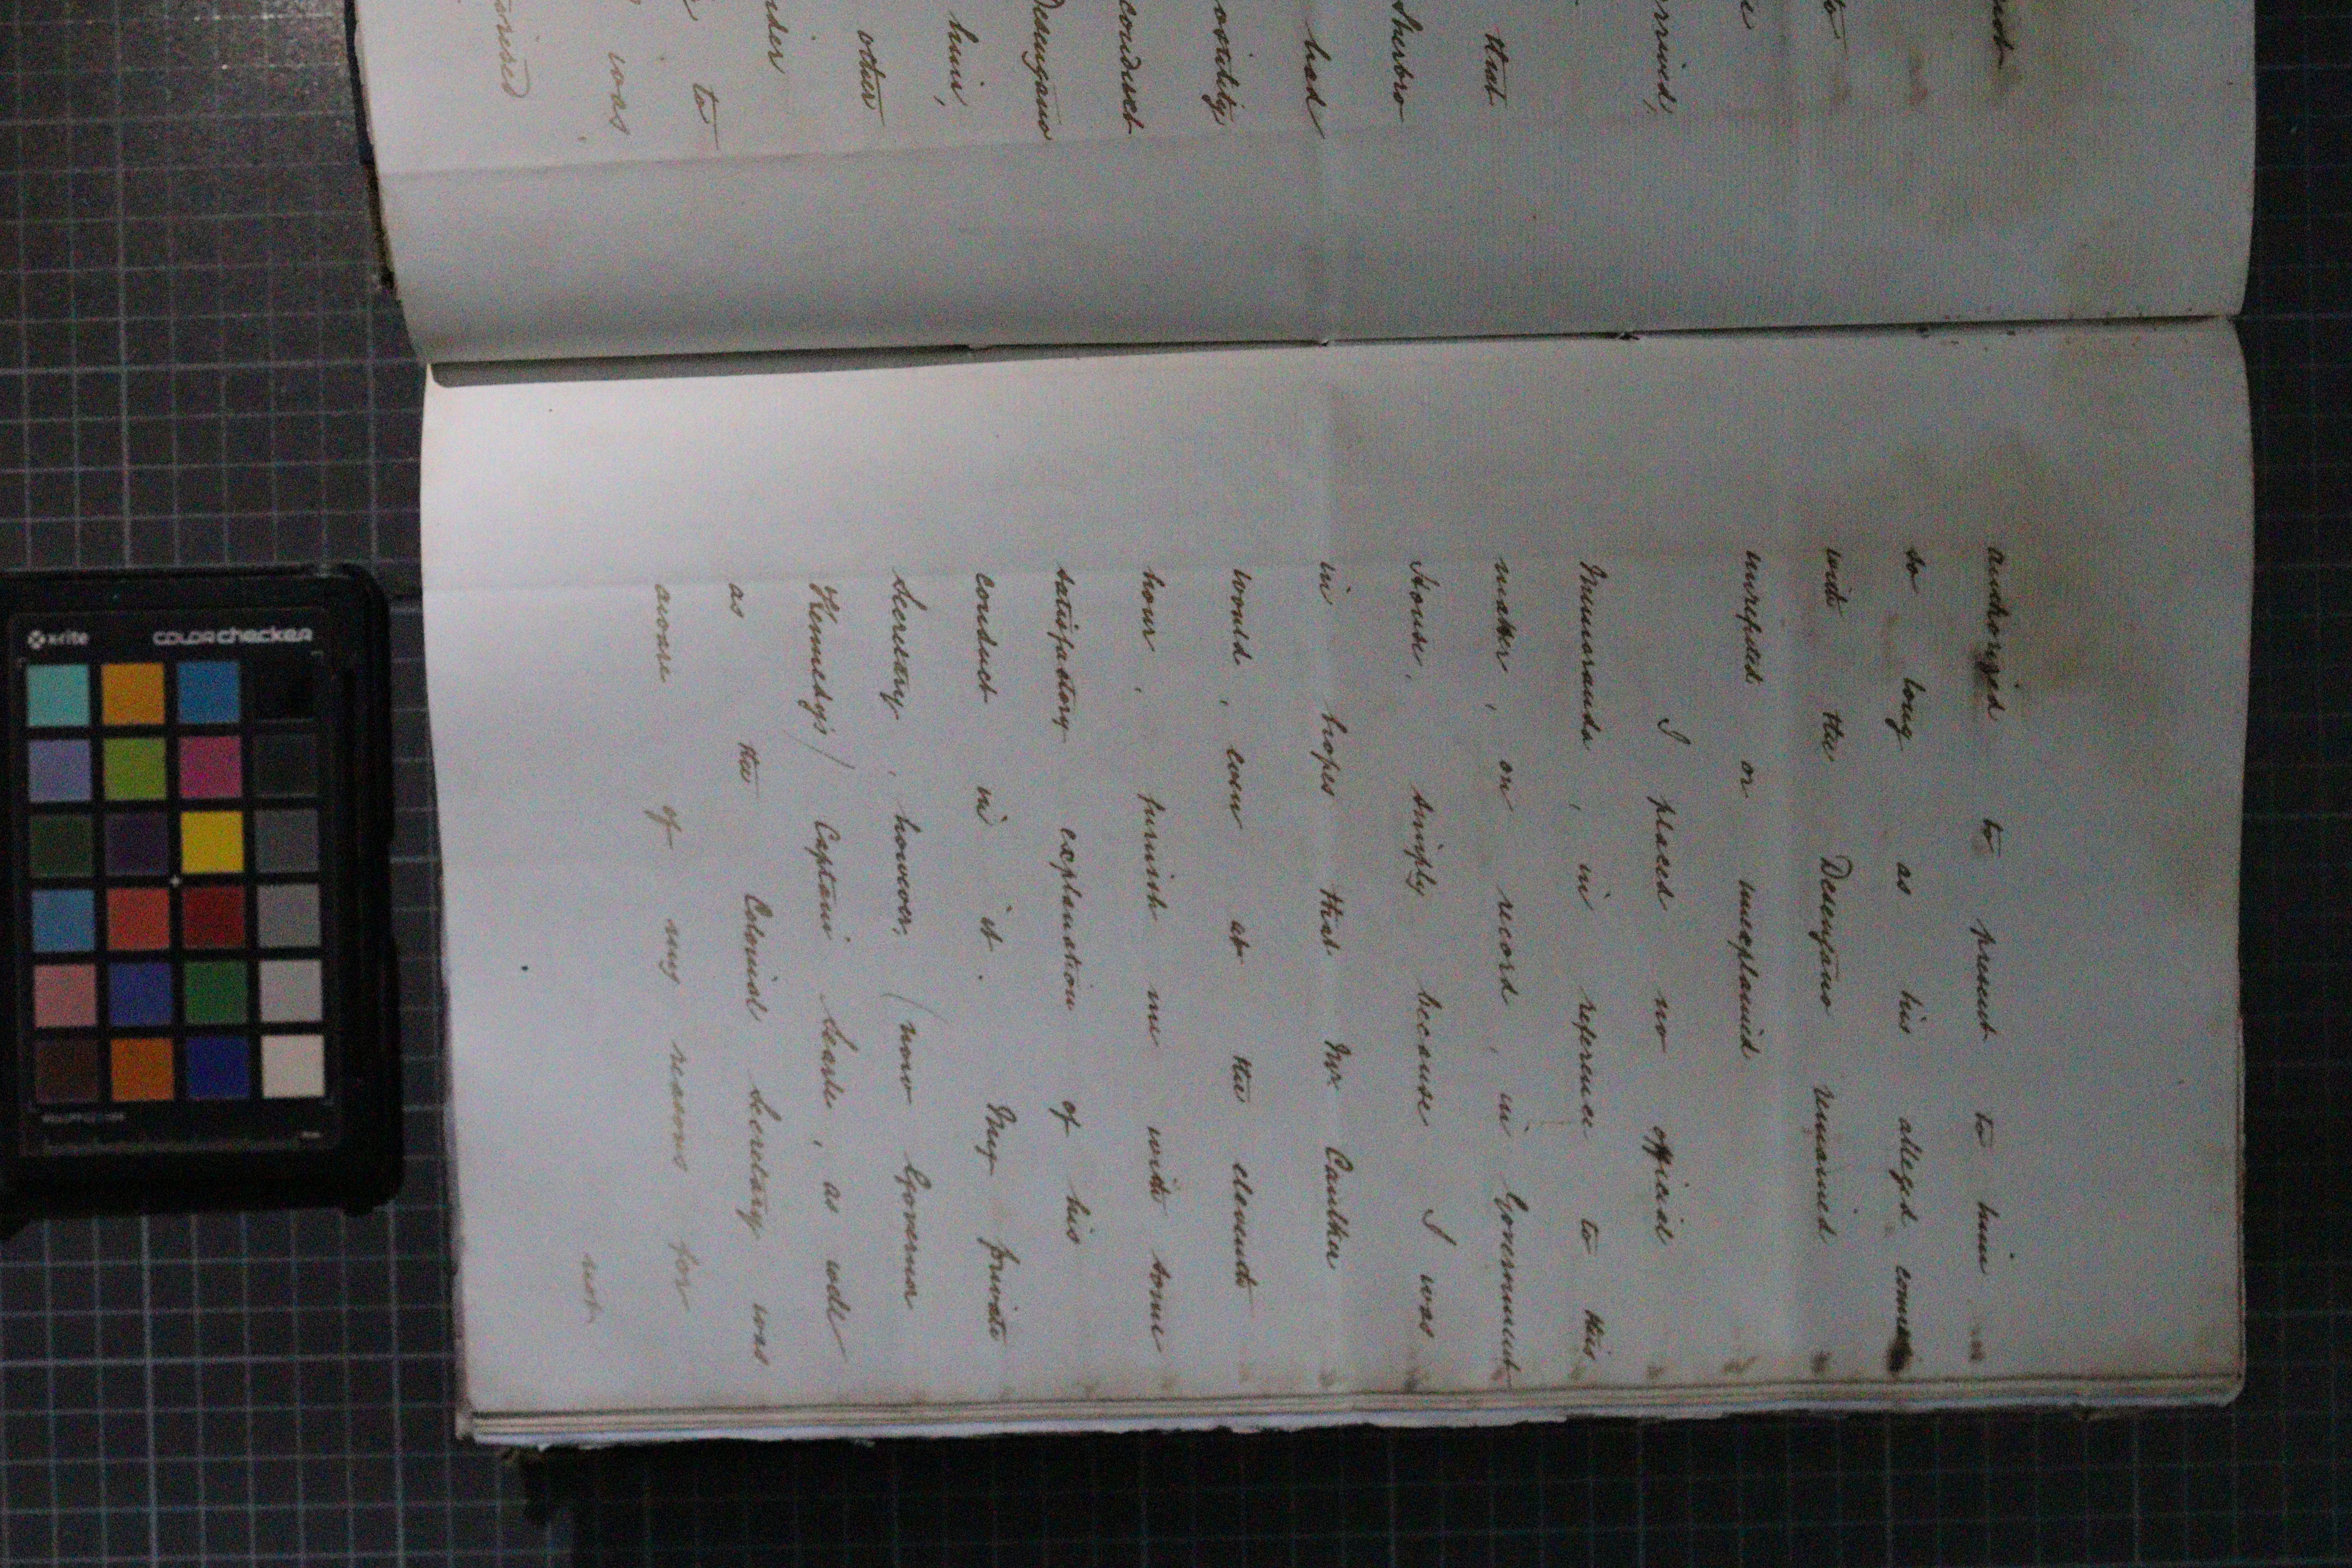 not
to
e
arrived,
that
Sherbro
had
conduct
him,
other
to
was
authorized to present to him
so long as his alleged connec
with the Desengano remained
unrefuted or unexplained
I placed no official
Memoranda, in reference to this
matter, on record, in Government
House, simply because I was
in hopes that Mr Caulker
would, even at the eleventh
hour, furnish me with some
satisfactory explanation of his
conduct in it. My private
Secretary, however, (now Governor
Kennedy's) Captain Searle, as well
as the Colonial Secretary was
aware of my reasons for
not
x-rite colorchecker